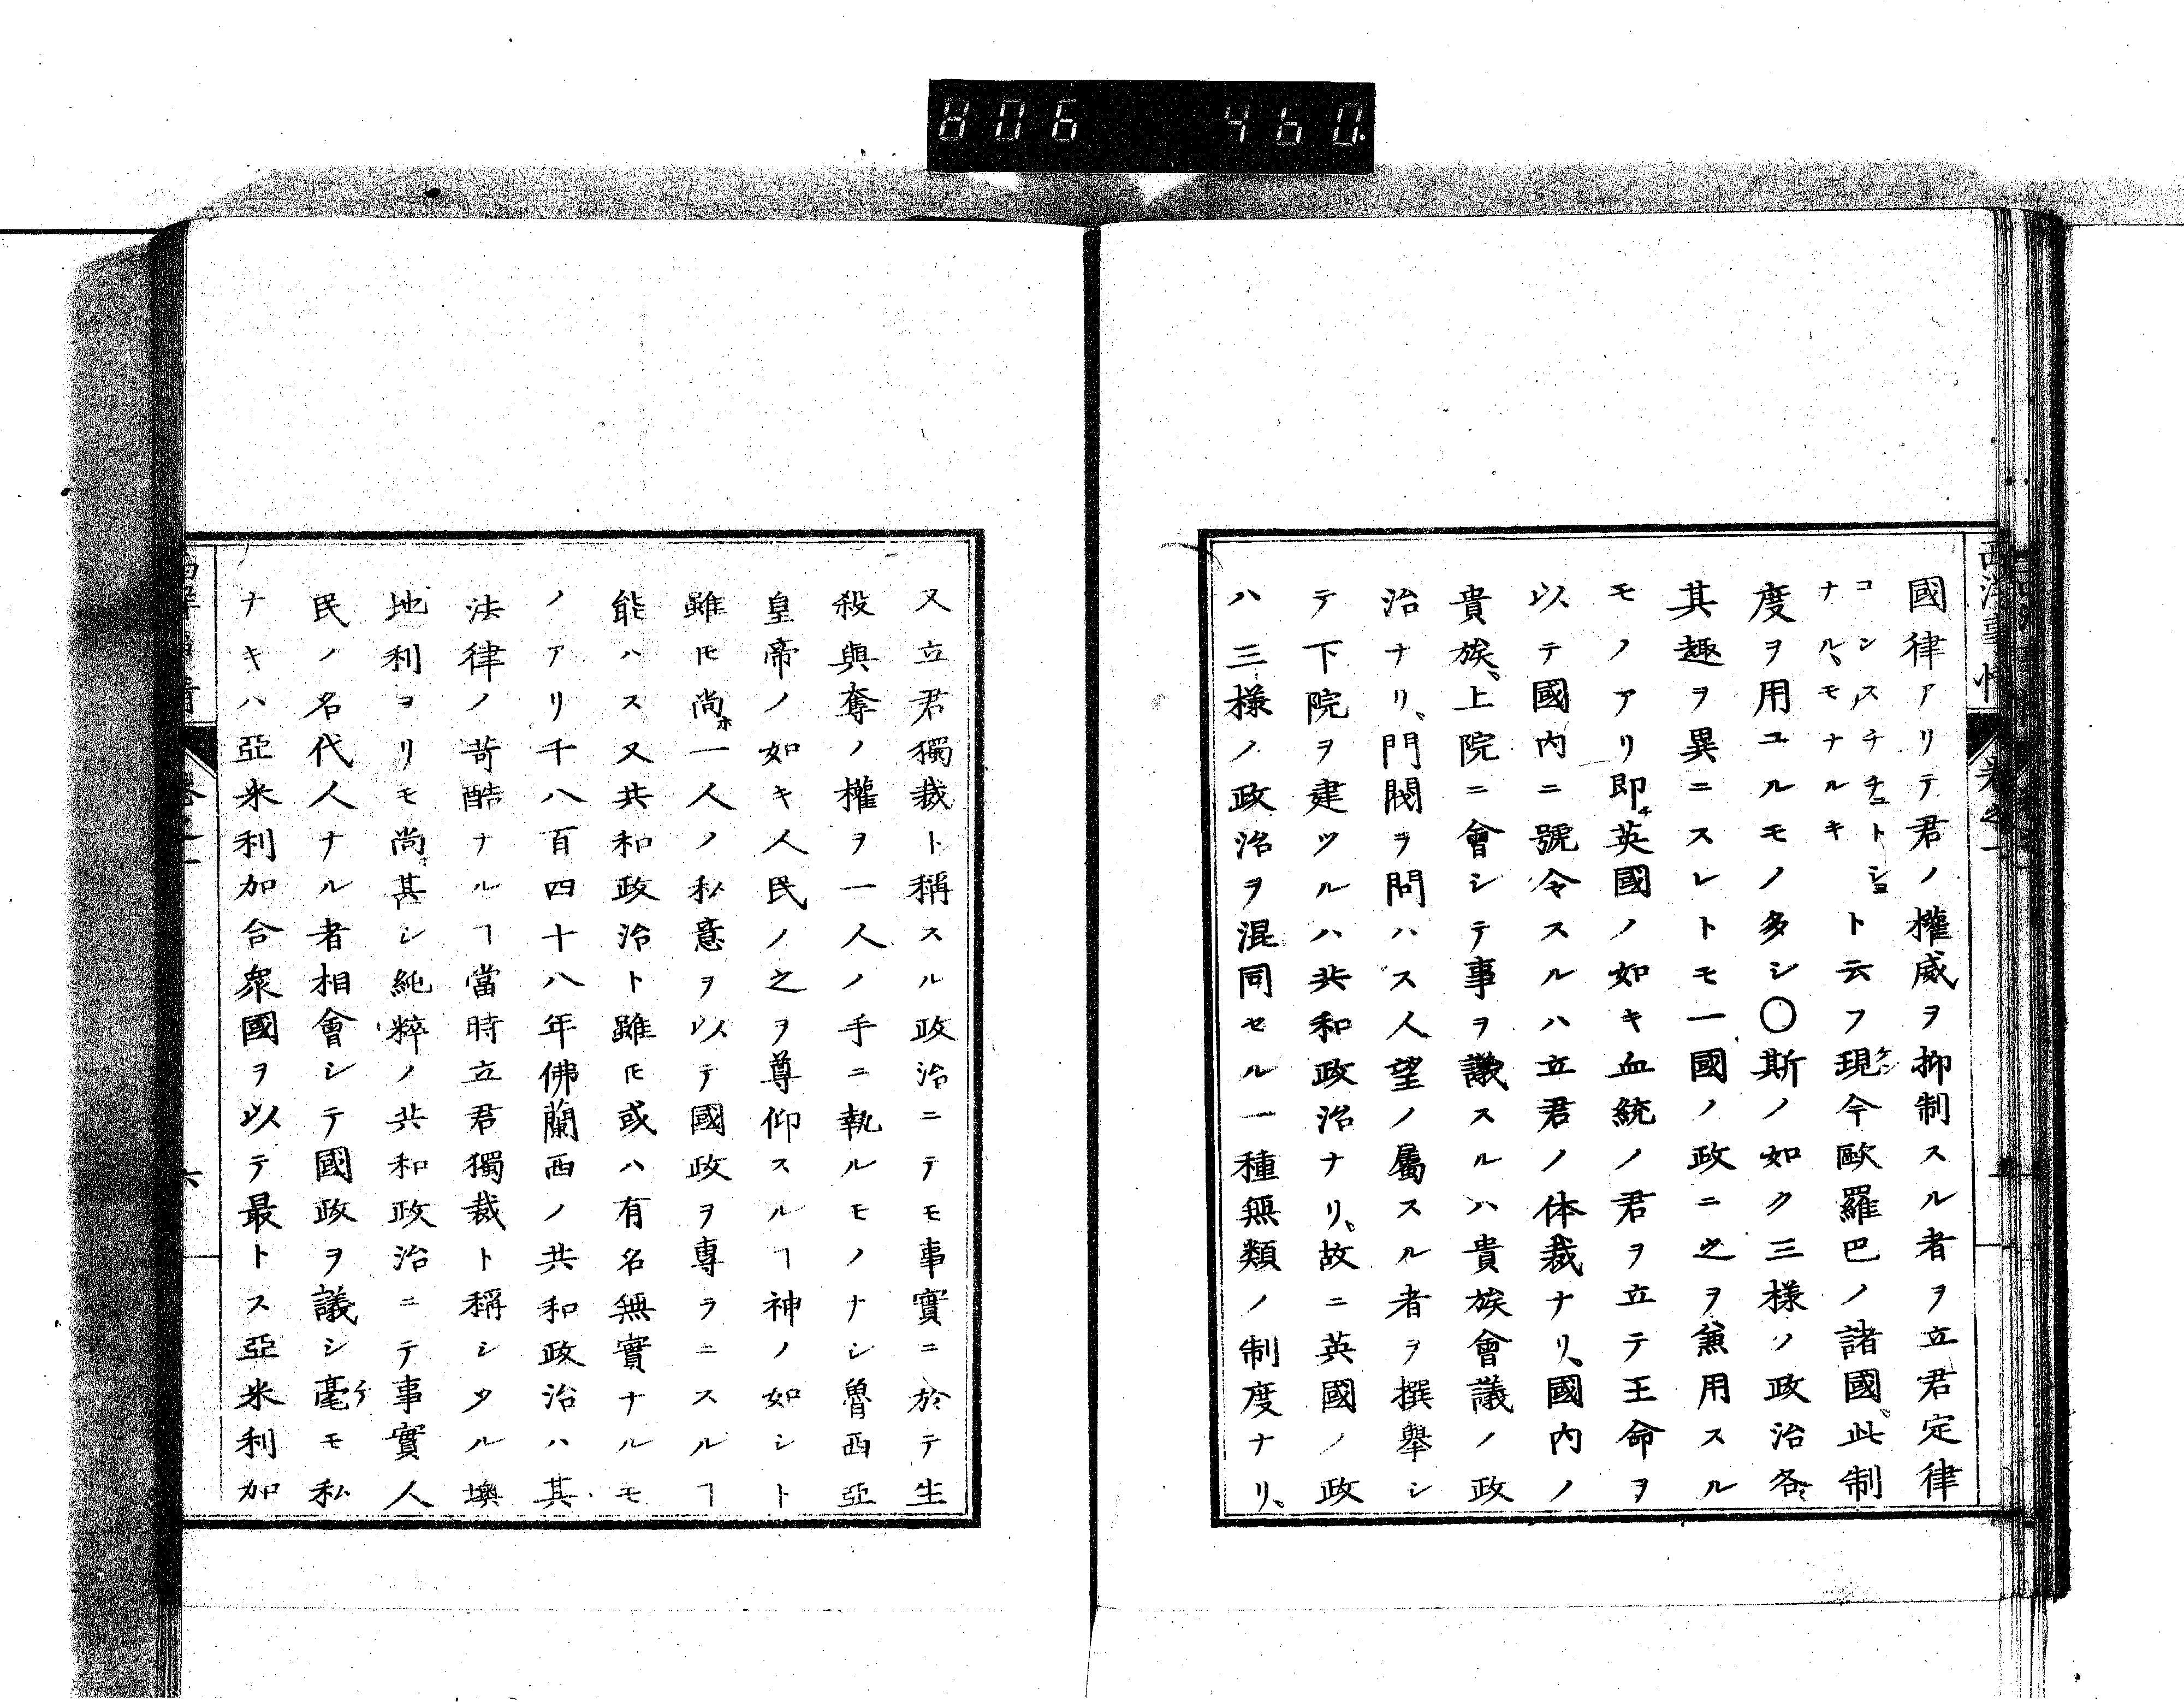 806 460.
西洋事情 卷之一 五
國律アリテ君ノ權威ヲ抑制スル者ヲ立君定律
コンスチチュトショナル、モナルキト云フ現ケン今歐羅巴ノ諸國、此制
度ヲ用ユルモノ多シ〇斯ノ如ク三様ノ政治各、
其趣ヲ異ニスレトモ一國ノ政ニ之ヲ兼用スル
モノアリ即チ英國ノ如キ血統ノ君ヲ立テ王命ヲ
以テ國内ニ號令スルハ立君ノ体裁ナリ、國内ノ
貴族、上院ニ會シテ事ヲ議スルハ貴族會議ノ政
治ナリ、門閥ヲ問ハス人望ノ屬スル者ヲ撰舉シ
テ下院ヲ建ツルハ共和政治ナリ、故ニ英國ノ政
ハ三様ノ政治ヲ混同セル一種無類ノ制度ナリ、
又立君獨裁ト稱スル政治ニテモ事實ニ於テ生
殺與奪ノ權ヲ一人ノ手ニ執ルモノナシ魯西亞
皇帝ノ如キ人民ノ之ヲ尊仰スルヿ神ノ如シト
雖𪜈尚ホ一人ノ私意ヲ以テ國政ヲ專ラニスルヿ
能ハス又共和政治ト雖𪜈或ハ有名無實ナルモ
ノアリ千八百四十八年佛蘭西ノ共和政治ハ其
法律ノ苛酷ナルヿ當時立君獨裁ト稱シタル墺
地利ヨリモ尚甚シ純粹ノ共和政治ニテ事實人
民ノ名代人ナル者相會シテ國政ヲ議シ毫モ私
ナキハ亞米利加合衆國ヲ以テ最トス亞米利加
六